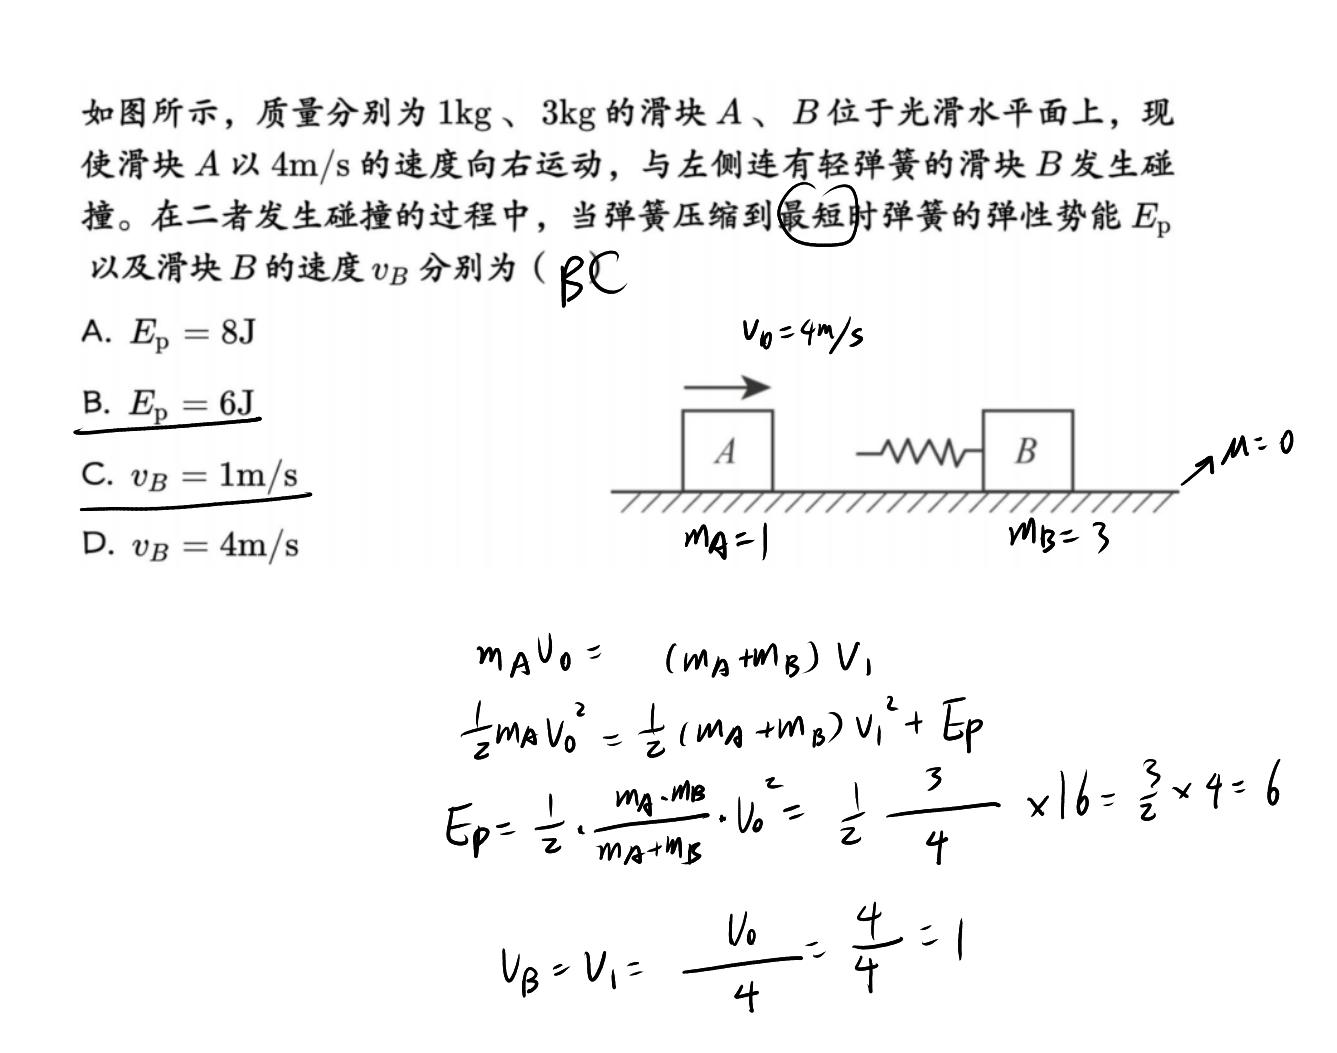 如图所示，质量分别为 1kg 、 3kg 的滑块 A 、 B 位于光滑水平面上，现
使滑块 A 以 4m/s 的速度向右运动，与左侧连有轻弹簧的滑块 B 发生碰
撞。在二者发生碰撞的过程中，当弹簧压缩到最短时弹簧的弹性势能 Eₚ
以及滑块 B 的速度 v_B 分别为（ BC
A. Eₚ = 8J
B. Eₚ = 6J
C. v_B = 1m/s
D. v_B = 4m/s
V₀=4m/s
A
B
μ=0
m_A=1
m_B=3
m_A V₀ = (m_A+m_B) V₁
1/2 m_A V₀² = 1/2 (m_A+m_B) V₁² + Eₚ
Eₚ = 1/2 · (m_A·m_B)/(m_A+m_B) · V₀² = 1/2 3/4 ×16 = 3/2 × 4 = 6
V_B = V₁ = V₀/4 = 4/4 = 1